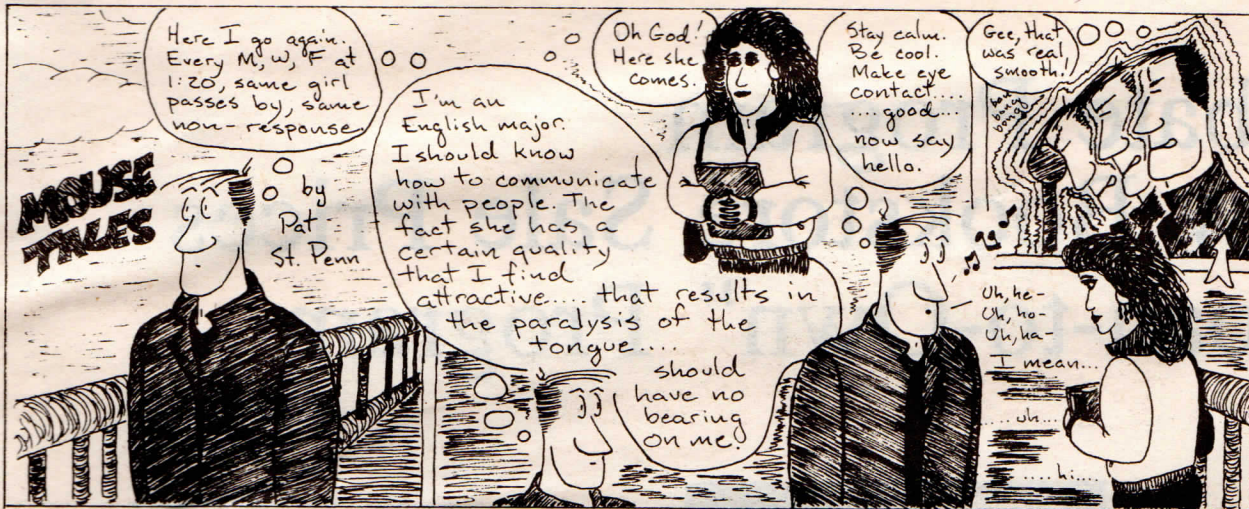 MOUSE
TALES
by
Pat
St. Penn
Here I go again.
Every M, W, F at
1:20, same girl
passes by, same
non-response.
I'm an
English major.
I should know
how to communicate
with people. The
fact she has a
certain quality
that I find
attractive.... that results in
the paralysis of the
tongue....
should
have no
bearing
on me.
Oh God!
Here she
comes.
Stay calm.
Be cool.
Make eye
contact....
....good...
now say
hello.
Uh, he-
Uh, ho-
Uh, ha-
I mean...
...uh...
....hi....
Gee, that
was real
smooth!
bang
bang